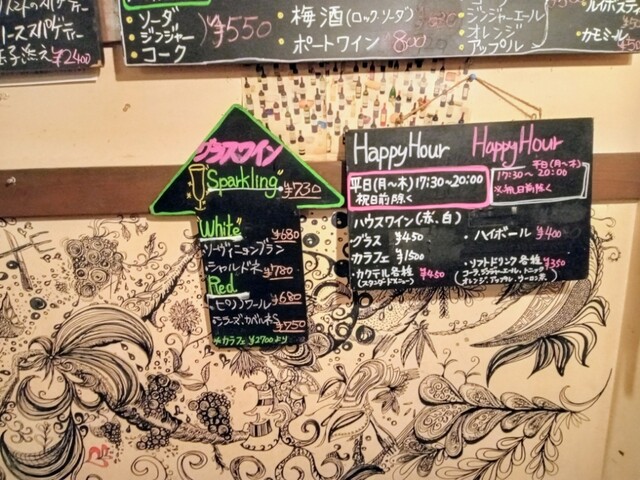 ¥2400
ソーダ
ジンジャー
コーク
¥550
梅酒(ロック・ソーダ)
ポートワイン 800
ジンジャーエール
オレンジ
アップル
ルイボスティ
カモミール
グラスワイン
Sparkling ¥730
White ¥680
・ソーヴィニョンブラン
・シャルドネ ¥780
Red
・ピノノワール ¥680
・シラーズ・カベルネS ¥750
カラフェ ¥2700より
Happy Hour
平日(月〜木)17:30〜20:00
祝日前除く
ハウスワイン(赤、白)
グラス ¥450
カラフェ ¥1500
・カクテル各種 ¥450
(スタンダードメニュー)
Happy Hour
平日(月〜木)
17:30〜20:00
※祝日前除く
・ハイボール ¥400
・ソフトドリンク各種 ¥350
(コーラ、ジンジャーエール、トニック
オレンジ、アップル、ウーロン茶)